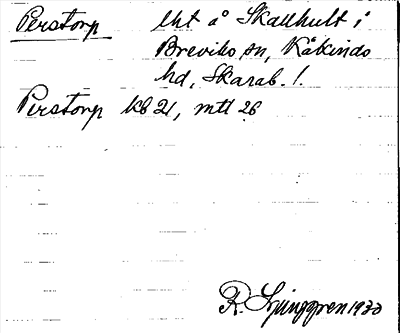 Perstorp lht å Skallhult i
Breviks sn, Kåkinds
hd, Skarab. l.
Perstorp kb 21, mtl 26
R. Ljunggren 1930